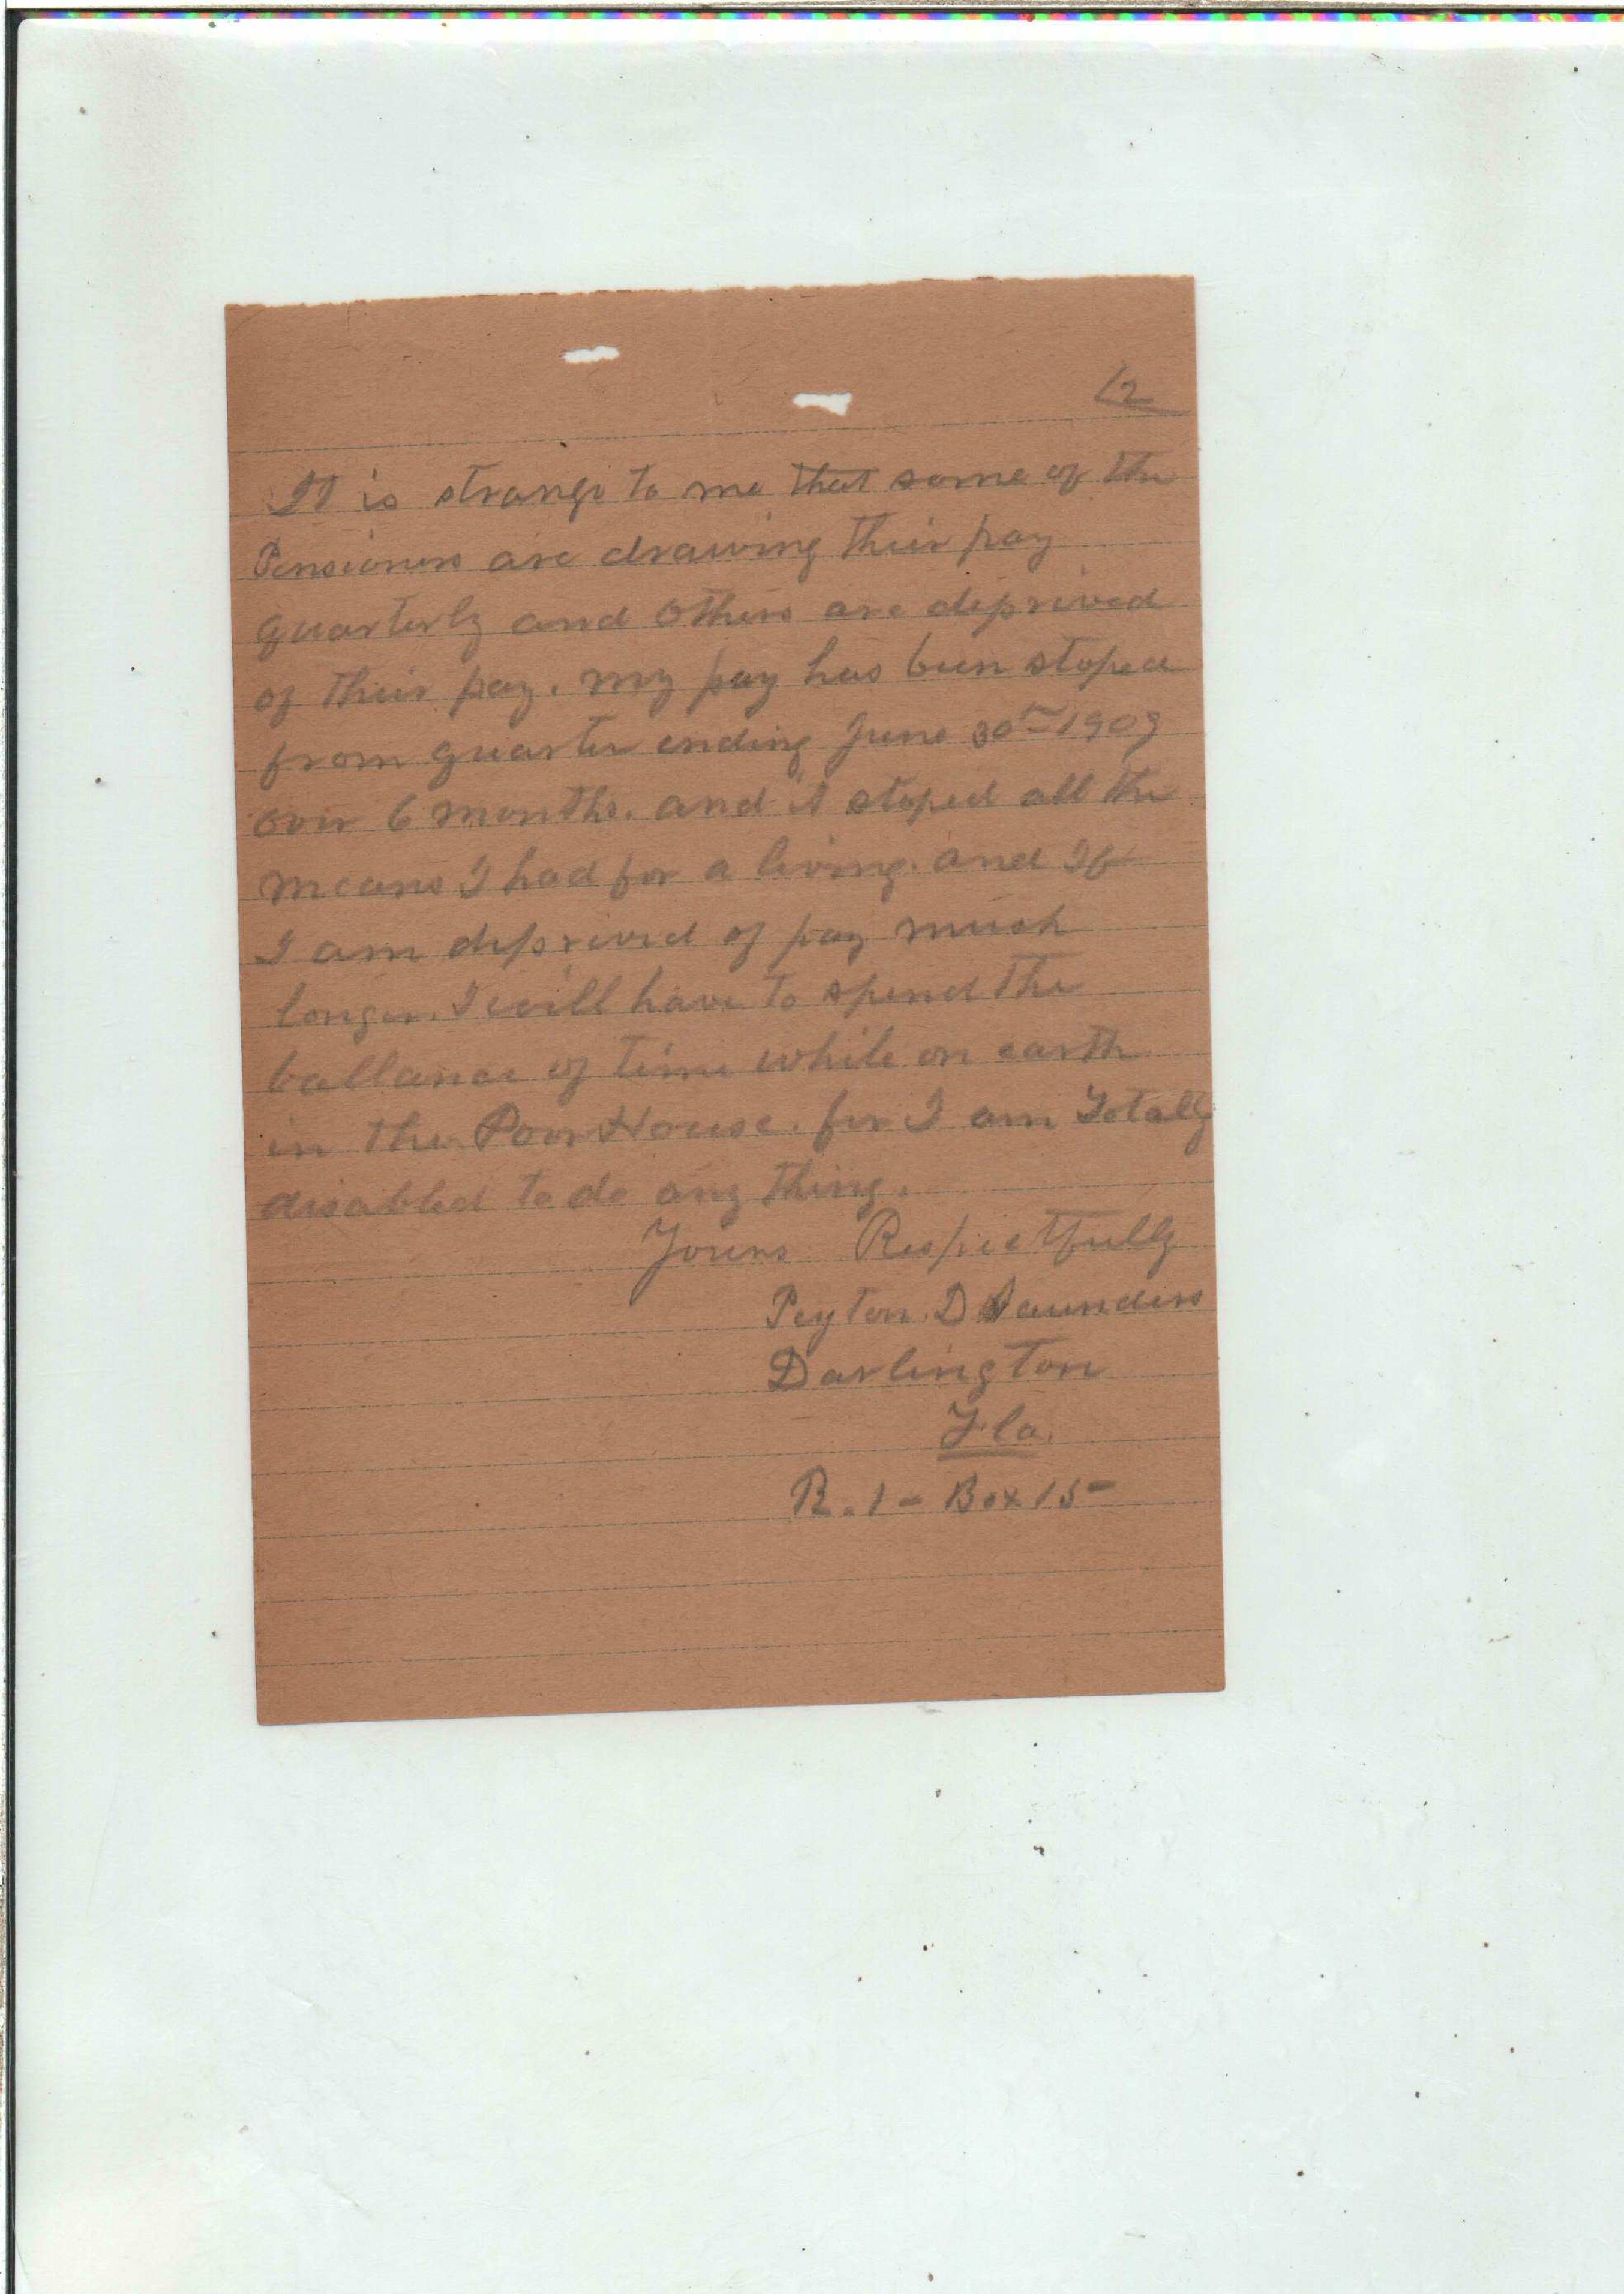 2
It is strange to me that some of the
Pensioners are drawing their pay
quarterly and Others are deprived
of their pay. my pay has been stoped
from quarter ending June 30th 1909
over 6 months. and it stoped all the
means I had for a living. and If
I am deprived of pay much
longer. I will have to spend the
ballance of time while on earth
in the Poor House. for I am Totally
disabled to do any thing.
Yours Respectfully
Peyton. D Saunders
Darlington
Fla.
R. 1 - Box 15-